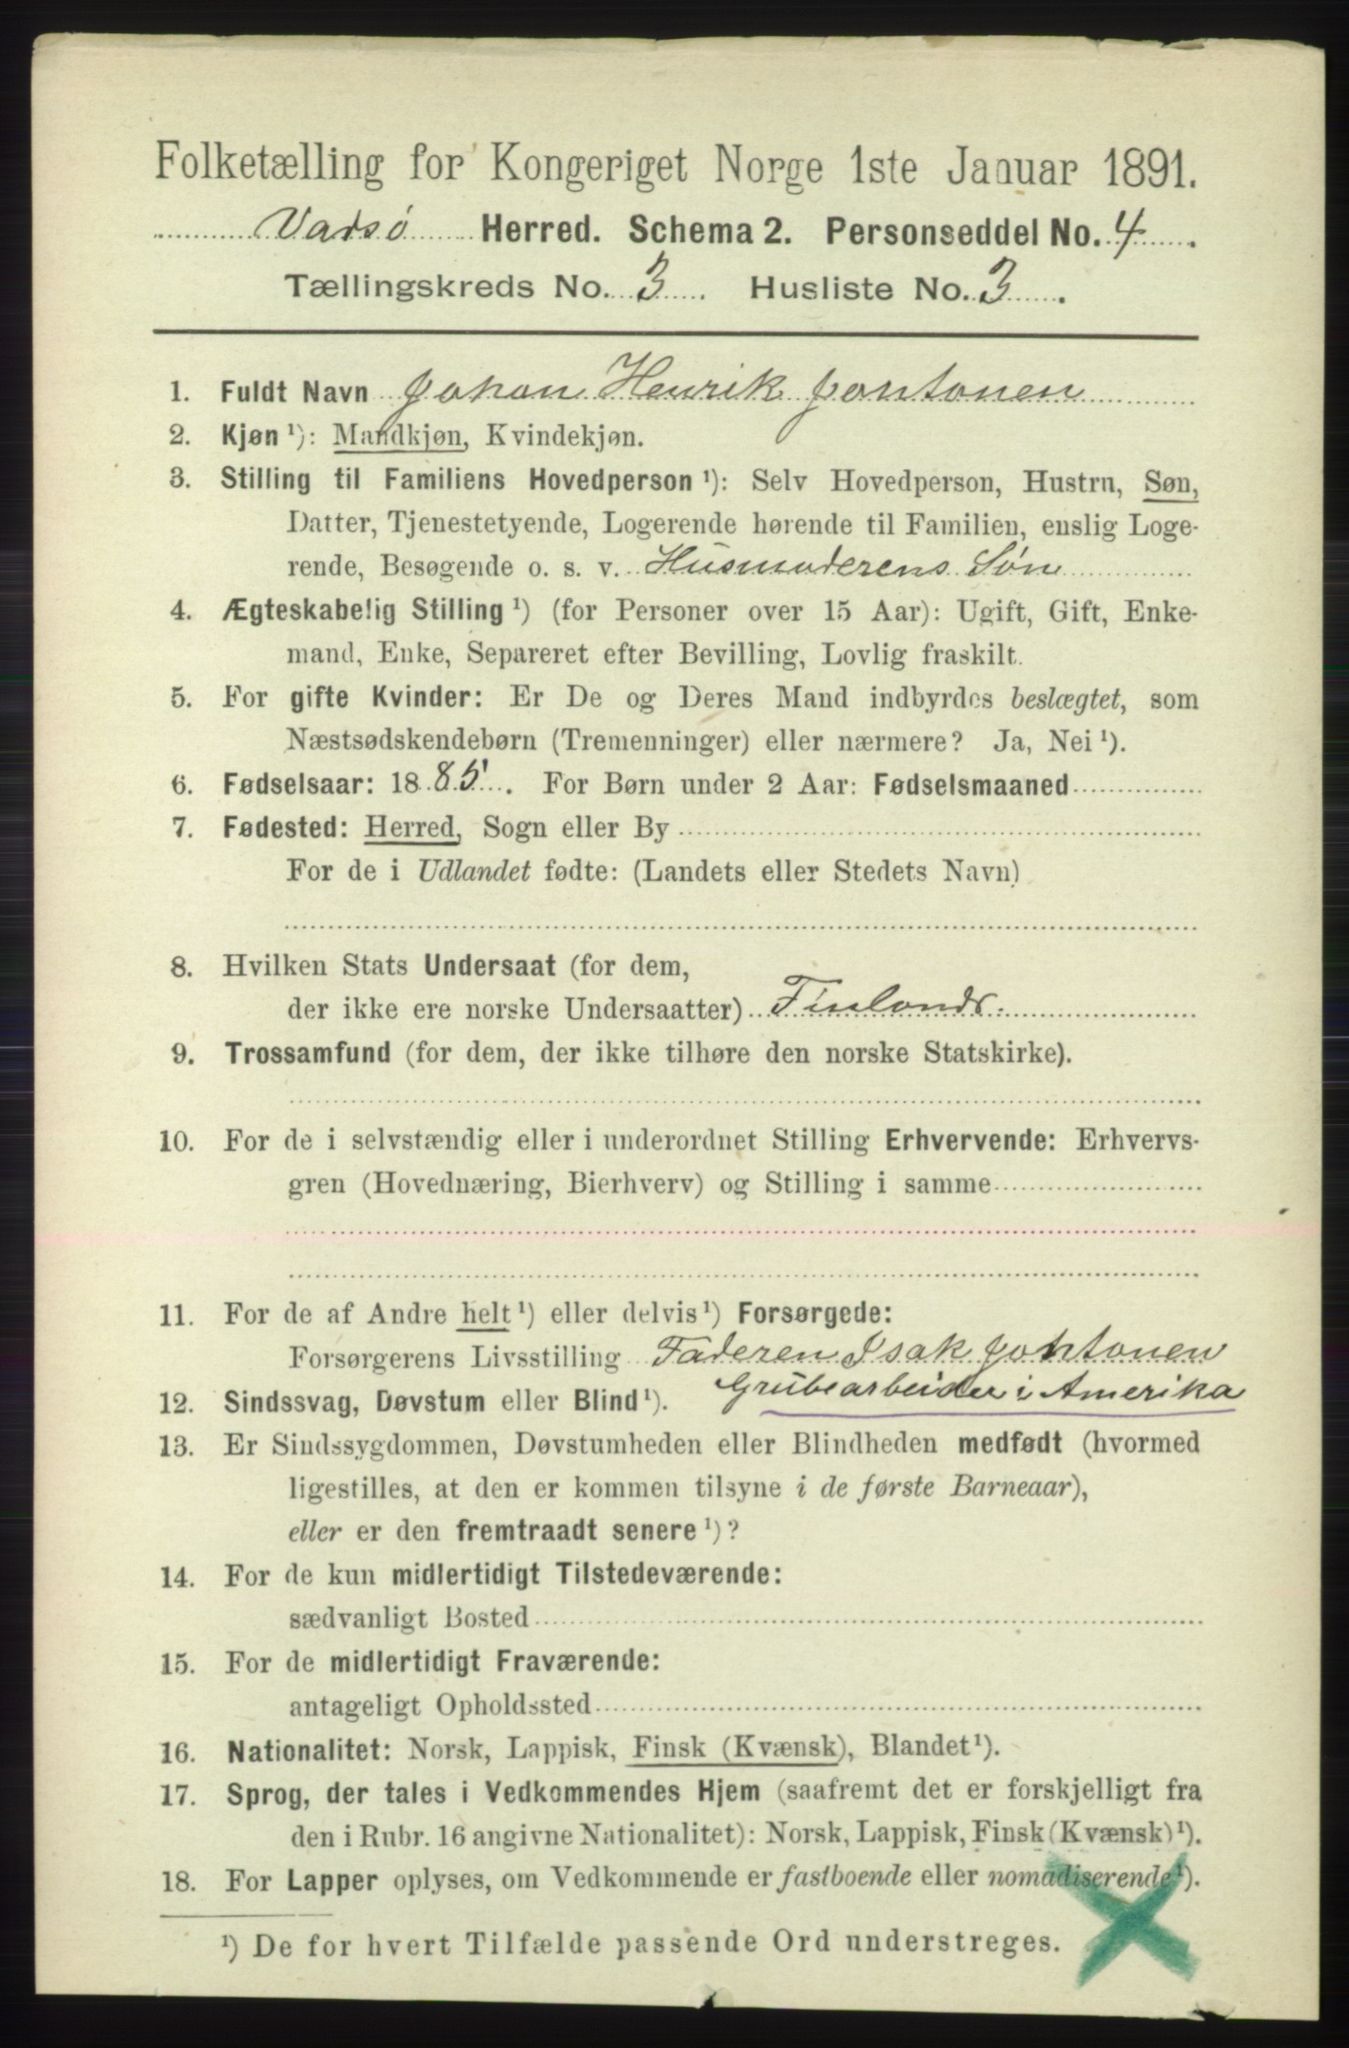 Folketælling for Kongeriget Norge 1ste Januar 1891.
Vadsø Herred. Schema 2. Personseddel No. 4.
Tællingskreds No. 3. Husliste No. 3.
1. Fuldt Navn Johan Henrik Jontonen
2. Kjøn ¹): Mandkjøn, Kvindekjøn.
3. Stilling til Familiens Hovedperson ¹): Selv Hovedperson, Hustru, Søn,
Datter, Tjenestetyende, Logerende hørende til Familien, enslig Loge-
rende, Besøgende o. s. v. Husmoderens Søn
4. Ægteskabelig Stilling ¹) (for Personer over 15 Aar): Ugift, Gift, Enke-
mand, Enke, Separeret efter Bevilling, Lovlig fraskilt.
5. For gifte Kvinder: Er De og Deres Mand indbyrdes beslægtet, som
Næstsødskendebørn (Tremenninger) eller nærmere? Ja, Nei ¹).
6. Fødselsaar: 1885. For Børn under 2 Aar: Fødselsmaaned
7. Fødested: Herred, Sogn eller By
For de i Udlandet fødte: (Landets eller Stedets Navn)
8. Hvilken Stats Undersaat (for dem,
der ikke ere norske Undersaatter) Finlands.
9. Trossamfund (for dem, der ikke tilhøre den norske Statskirke).
10. For de i selvstændig eller i underordnet Stilling Erhvervende: Erhvervs-
gren (Hovednæring, Bierhverv) og Stilling i samme
11. For de af Andre helt ¹) eller delvis ¹) Forsørgede:
Forsørgerens Livsstilling Faderen Isak Jontonen
Grubearbeider i Amerika
12. Sindssvag, Døvstum eller Blind ¹).
13. Er Sindssygdommen, Døvstumheden eller Blindheden medfødt (hvormed
ligestilles, at den er kommen tilsyne i de første Barneaar),
eller er den fremtraadt senere ¹)?
14. For de kun midlertidigt Tilstedeværende:
sædvanligt Bosted
15. For de midlertidigt Fraværende:
antageligt Opholdssted
16. Nationalitet: Norsk, Lappisk, Finsk (Kvænsk), Blandet ¹).
17. Sprog, der tales i Vedkommendes Hjem (saafremt det er forskjelligt fra
den i Rubr. 16 angivne Nationalitet): Norsk, Lappisk, Finsk (Kvænsk) ¹).
18. For Lapper oplyses, om Vedkommende er fastboende eller nomadiserende ¹).
¹) De for hvert Tilfælde passende Ord understreges.